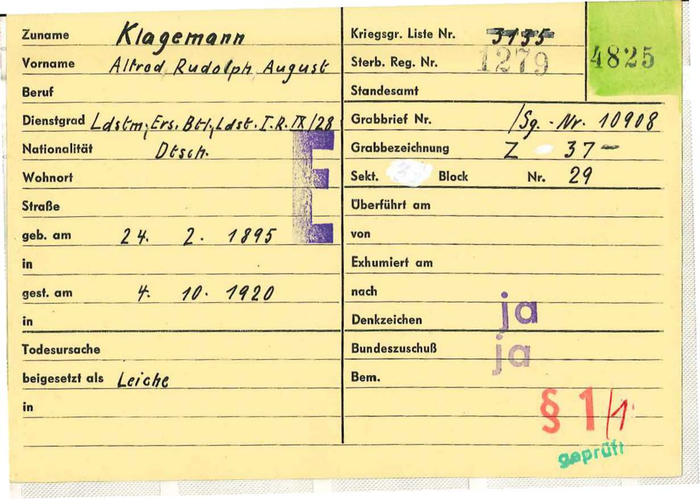 Zuname Klagemann
Vorname Alfred, Rudolph, August
Beruf
Dienstgrad Ldstm., Ers. Btl., Ldst. I.R. IX/28
Nationalität Dtsch.
Wohnort
Straße
geb. am 24. 2. 1895
in
gest. am 4. 10. 1920
in
Todesursache
beigesetzt als Leiche
in
E
Kriegsgr. Liste Nr. 3135
Sterb. Reg. Nr. 1279
4825
Standesamt
Grabbrief Nr. /Sg.-Nr. 10908
Grabbezeichnung Z 37-
Sekt. Block Nr. 29
Überführt am
von
Exhumiert am
nach
Denkzeichen ja
Bundeszuschuß ja
Bem.
§ 1/1
geprüft